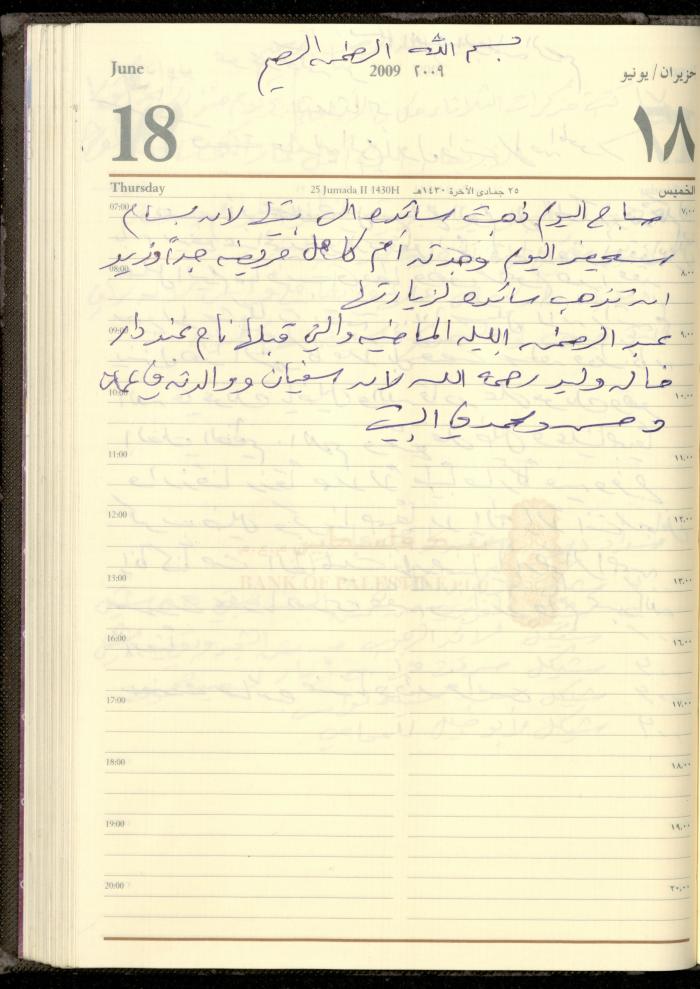 بسم الله الرحمن الرحيم
June 2009 ٢٠٠٩ حزيران / يونيو
18 ١٨
Thursday 25 Jumada II 1430H ٢٥ جمادى الآخرة ١٤٣٠هـ الخميس
07:00 صباح اليوم ذهبت سائده الى بيتها لان بسام ٧,٠٠
ستحضر اليوم وجدته أم كامل مريضه جداً وتريد
08:00 ٨,٠٠
ان تذهب سائده لزيارتها
09:00 عبد الرحمن الليله الماضيه والتي قبلها نام عند دار ٩,٠٠
خاله وليد رحمه الله لان سفيان ووالدته في عمان
10:00 ١٠,٠٠
وحسن ومحمد في البيت
11:00 ١١,٠٠
12:00 ١٢,٠٠
BANK OF PALESTINE
13:00 ١٣,٠٠
16:00 ١٦,٠٠
17:00 ١٧,٠٠
18:00 ١٨,٠٠
19:00 ١٩,٠٠
20:00 ٢٠,٠٠